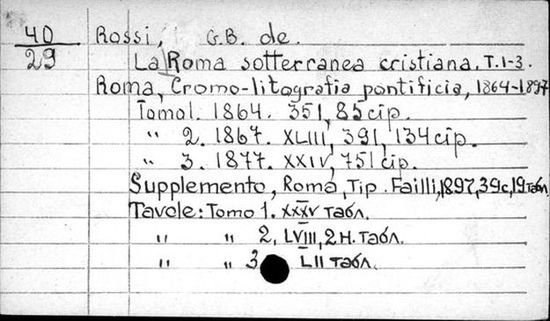 40 Rossi, G.B. de.
29 La Roma sotterranea cristiana. T.1-3.
Roma, Cromo-litografia pontificia, 1864-1897
Tomo 1. 1864. 351, 85 стр.
" 2. 1867. XLIII, 391, 134 стр.
" 3. 1877. XXIV, 751 стр.
Supplemento, Roma, Tip. Failli, 1897, 39 с, 19 табл
Tavole: Tomo 1. XXXV табл.
" " 2. LVIII, 2 н. табл.
" " 3 LII табл.